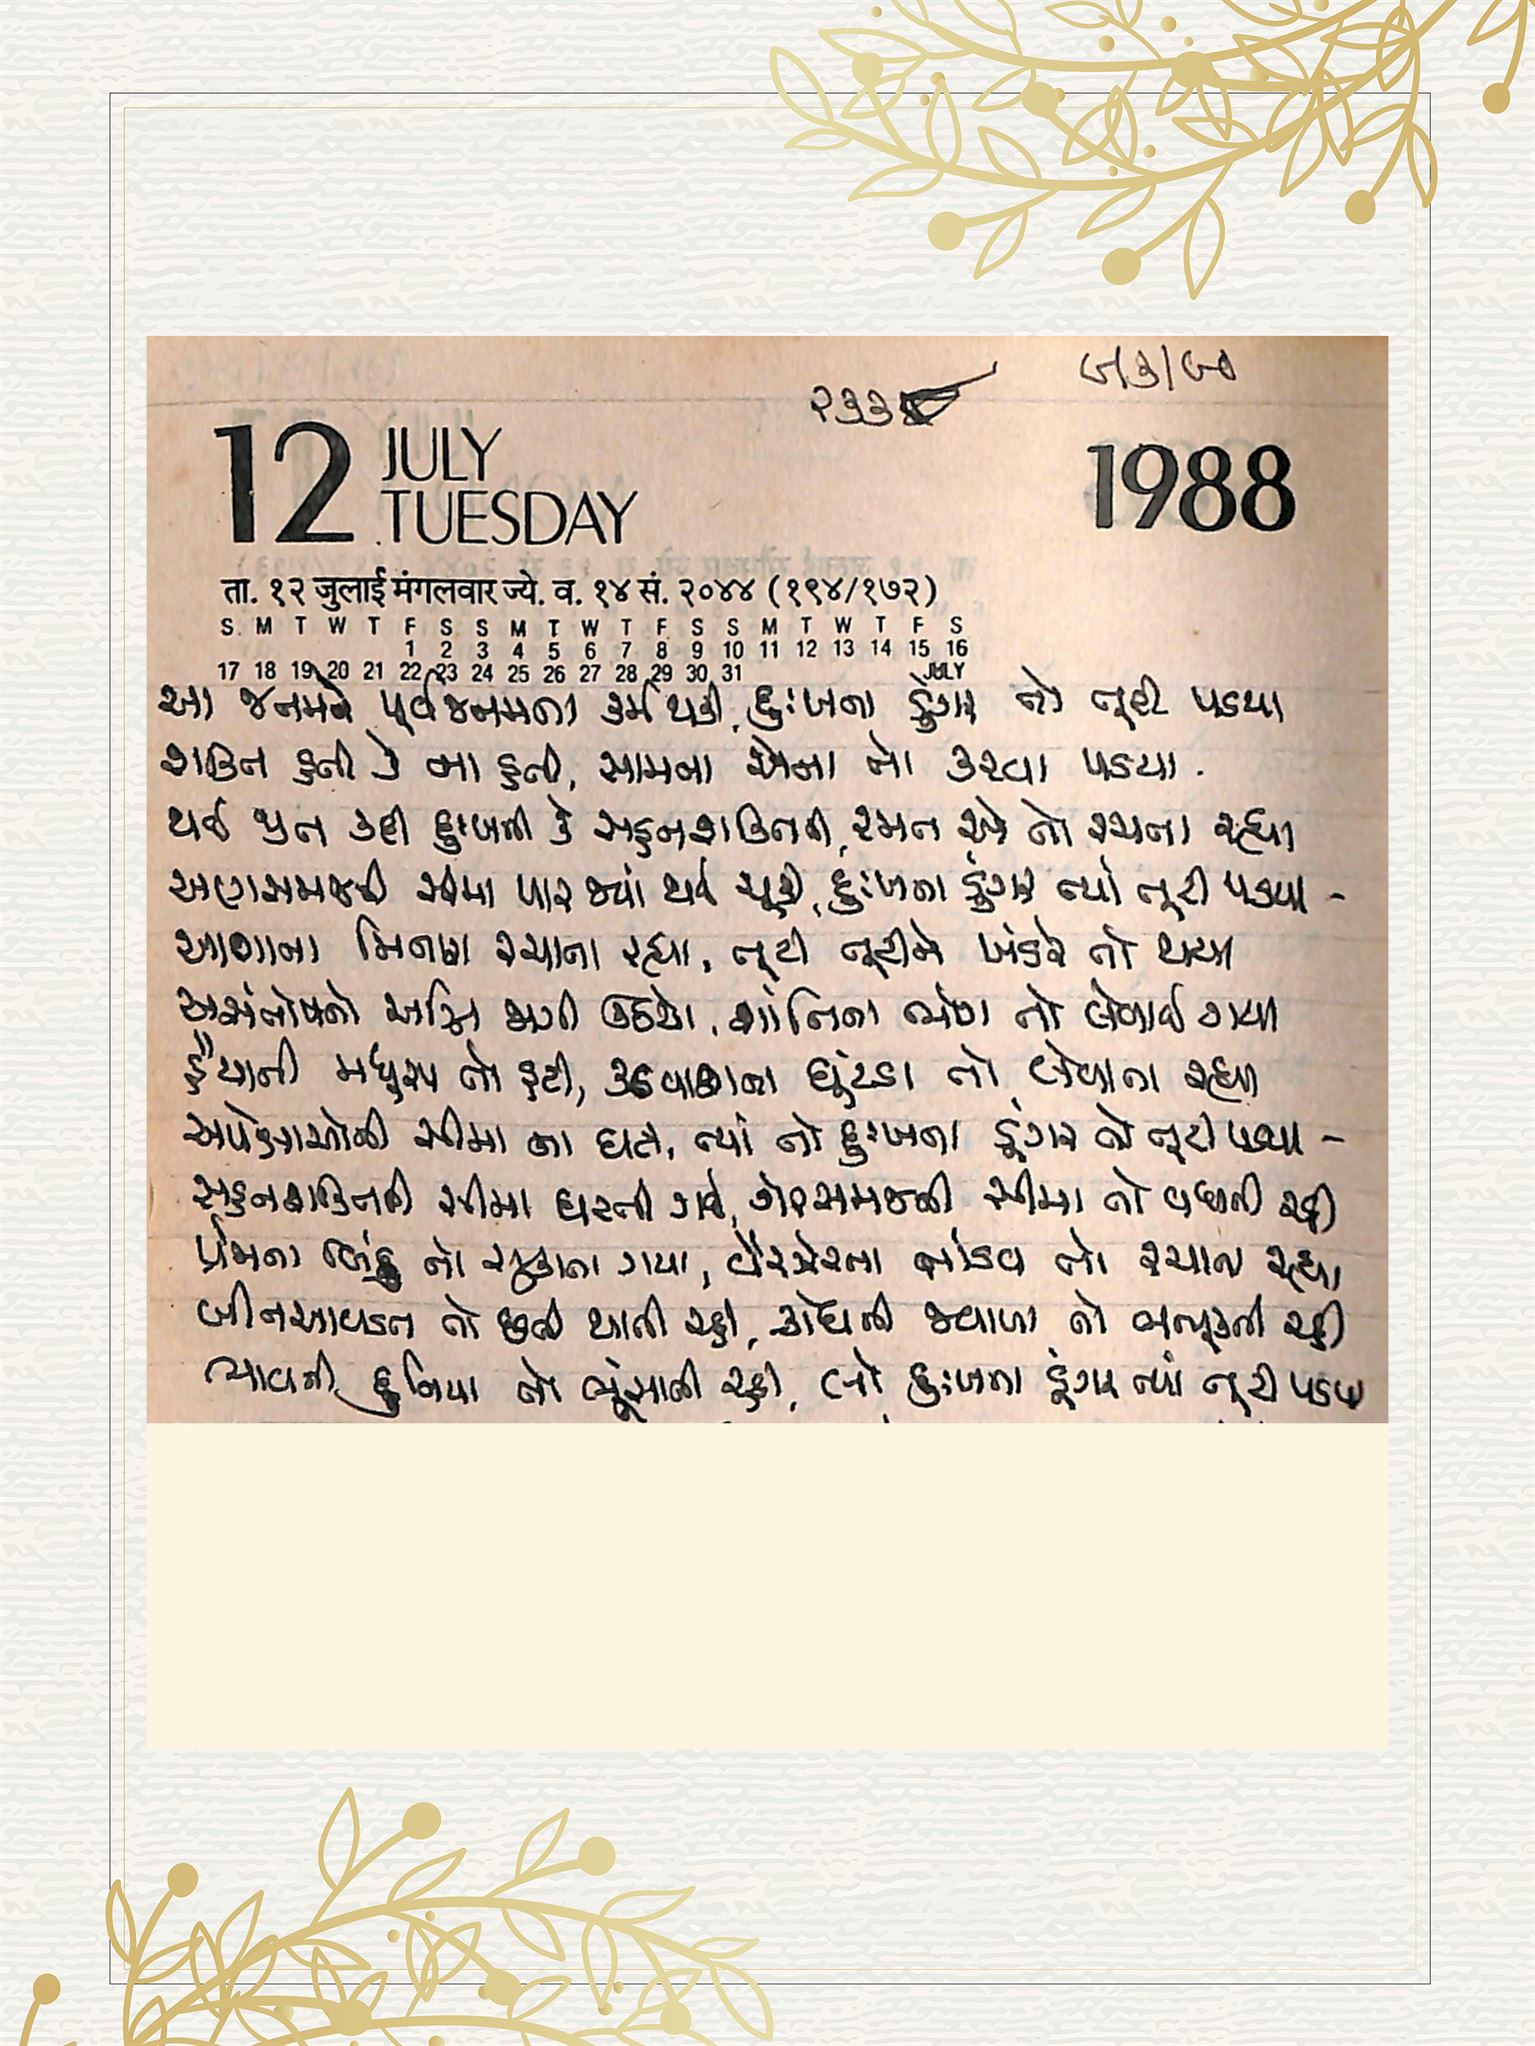 ૨૩૩
12 JULY TUESDAY 1988
ता. १२ जुलाई मंगलवार ज्ये. व. १४ सं. २०४४ (१९४/१७२)
S M T W T F S S M T W T F S S M T W T F S
1 2 3 4 5 6 7 8 9 10 11 12 13 14 15 16
17 18 19 20 21 22 23 24 25 26 27 28 29 30 31 JULY
આ જનમને પૂર્વજનમના કર્મ થકી, દુઃખના ડુંગર તો તૂટી પડયા
શક્તિ હતી કે ના હતી, સામના એના તો કરવા પડયા.
થઈ જીત કદી દુઃખની કે સહનશક્તિની, રમત એ તો રમતા રહ્યા
અણસમજની સીમા પાર જ્યાં થઈ ચૂકી, દુઃખના ડુંગર ત્યાં તૂટી પડયા -
આશાના મિનારા રચાતા રહ્યા, તૂટી તૂટીને ખંડેર તો થયા
અસંતોષનો અગ્નિ જાગી ઉઠયો, શાંતિના ભોગ તો લેવાઈ ગયા
હૈયાની મધુરપ તો હટી, કડવાશના ઘુંટડા તો લેવાતા રહ્યા
અપેક્ષાઓની સીમા ના ઘટી, ત્યાં તો દુઃખના ડુંગર તો તૂટી પડયા -
સહનશક્તિની સીમા ઘટતી ગઈ, ગેરસમજની સીમા તો વધતી રહી
પ્રેમના બિંદુ તો સુકાતા ગયા, વૈરઝેરના તાંડવ તો રચાતા રહ્યા
બીનઆવડત તો છતી થાતી રહી, ક્રોધની જ્વાળા તો ભભૂકતી રહી
ભાવની દુનિયા તો ભૂંસાતી રહી, લો દુઃખના ડુંગર ત્યાં તૂટી પડયા